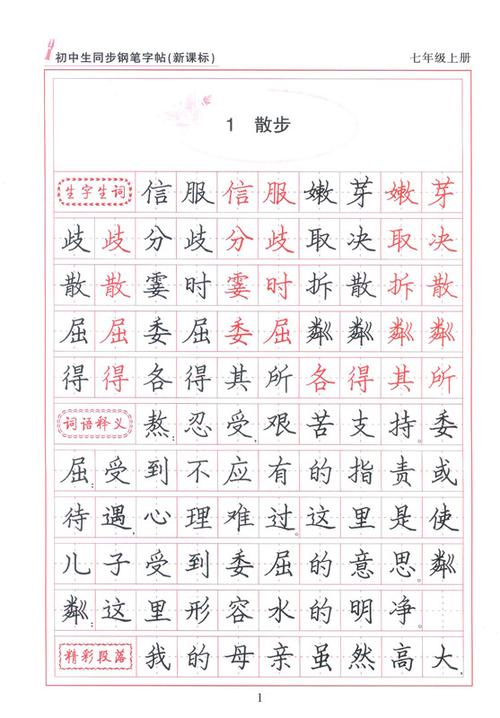 初中生同步钢笔字帖(新课标) 七年级上册
1 散步
生字生词 信服信服嫩芽嫩芽
歧歧分歧分歧取决取决
散散霎时霎时拆散拆散
屈屈委屈委屈粼粼粼粼
得得各得其所各得其所
词语释义 熬:忍受艰苦支持。委
屈:受到不应有的指责或
待遇,心理难过。这里是使
儿子受到委屈的意思。粼
粼:这里形容水的明净。
精彩段落 我的母亲虽然高大
1